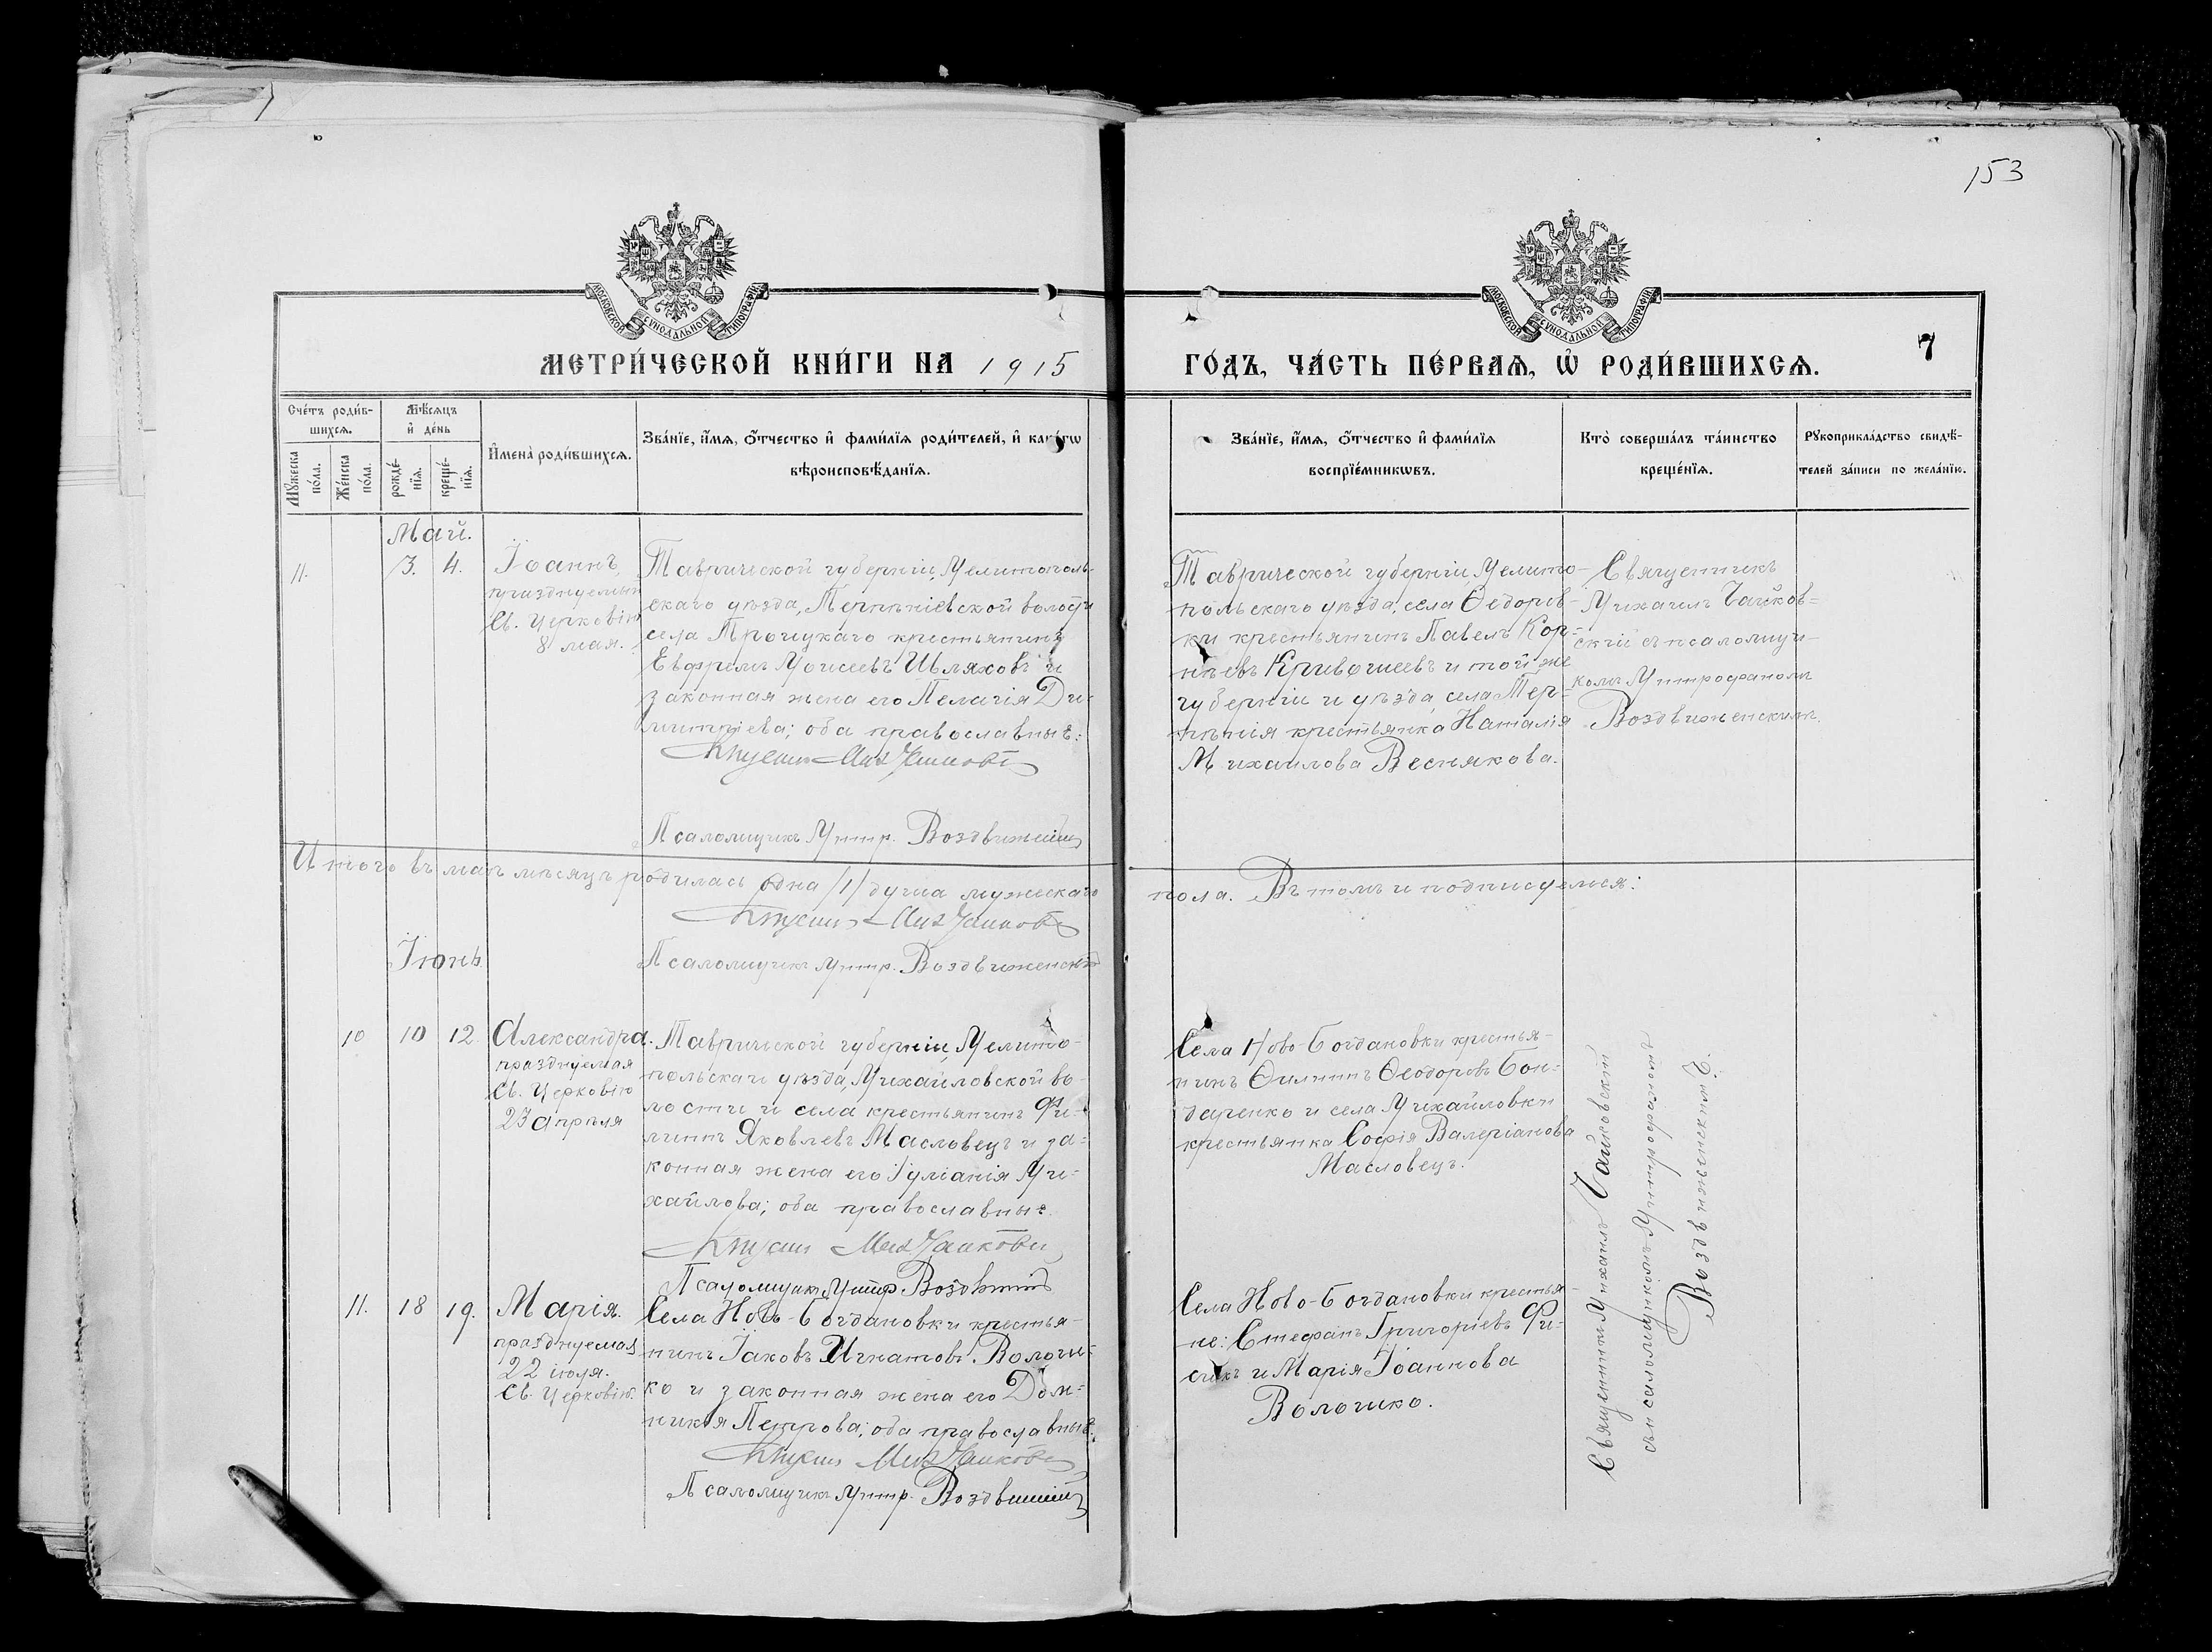 153
МОСКОВСКОЙ СУНОДАЛЬНОЙ ТИПОГРАФІИ
МОСКОВСКОЙ СУНОДАЛЬНОЙ ТИПОГРАФІИ
МЕТРИ́ЧЕСКОЙ КНИ́ГИ НА 1915
ГО́ДЪ, ЧА́СТЬ ПЕ́РВАѦ, Ѡ҆ РОДИ́ВШИХСѦ.
7
Сче́тъ роди́в-
шихсѧ.
Мѣ́сѧцъ
и҆ де́нь
Мꙋ́жеска
по́ла.
Же́нска
по́ла.
рожде́-
нїѧ.
креще́-
нїѧ.
И҆мена̀ роди́вшихсѧ.
Зва́нїе, и҆́мѧ, ѻ҆́тчество и҆ фами́лїѧ роди́телей, и҆ како́гѡ
вѣроисповѣ́данїѧ.
Зва́нїе, и҆́мѧ, ѻ҆́тчество и҆ фами́лїѧ
воспрїе́мникѡвъ.
Кто̀ соверша́лъ та́инство
креще́нїѧ.
Рꙋкоприкла́дство свидѣ́-
телей за́писи по жела́нїю.
Май.
11.
3.
4.
Іоаннъ
празднуемый
Св. Церковію
8 мая.
Таврической губерніи, Мелитополь-
скаго уѣзда, Терпѣніевской волости
села Троицкаго крестьянинъ
Евфремъ Моисеевъ Шляховъ и
законная жена его Пелагія Ди-
митріева; оба православные.
Псаломщикъ Митр. Воздвиженскій
Таврической губерніи, Мелито-
польскаго уѣзда, села Ѳедоров-
ки крестьянинъ Павелъ Кор-
нѣевъ Кривошеевъ и той же
губерніи и уѣзда, села Тер-
пѣнія крестьянка Наталія
Михаилова Веснякова.
Священникъ
Михаилъ Чайков-
скій съ псаломщи-
комъ Митрофаномъ
Воздвиженскимъ.
Итого въ маѣ мѣсяцѣ родилась одна /1/ душа мужескаго
пола. Въ томъ и подписуемся:
Псаломщикъ Митр. Воздвиженскій
Іюнь
10
10
12
Александра.
празднуемая
Св. Церковію
23 апрѣля
Таврической губерніи, Мелито-
польскаго уѣзда, Михайловской во-
лости и села крестьянинъ Фи-
липпъ Яковлевъ Масловецъ и за-
конная жена его Іуліанія Ми-
хайлова; оба православные.
Псаломщикъ Митр. Воздвиженскій
Села Ново-Богдановки крестья-
нинъ Ѳилиппъ Ѳеодоровъ Бон-
даренко и села Михайловки
крестьянка Софія Валеріанова
Масловецъ.
Священникъ Михаилъ Чайковскій
съ псаломщикомъ Митрофаномъ
Воздвиженскимъ.
11.
18
19.
Марія.
празднуемая
22 іюля.
Св. Церковію.
Села Ново-Богдановки крестья-
нинъ Іаковъ Игнатовъ Волошк-
ко и законная жена его Дом-
никія Петрова; оба православные.
Псаломщикъ Митр. Воздвиженскій
Села Ново-Богдановки крестья-
не: Стефанъ Григоріевъ
и Марія Іоаннова